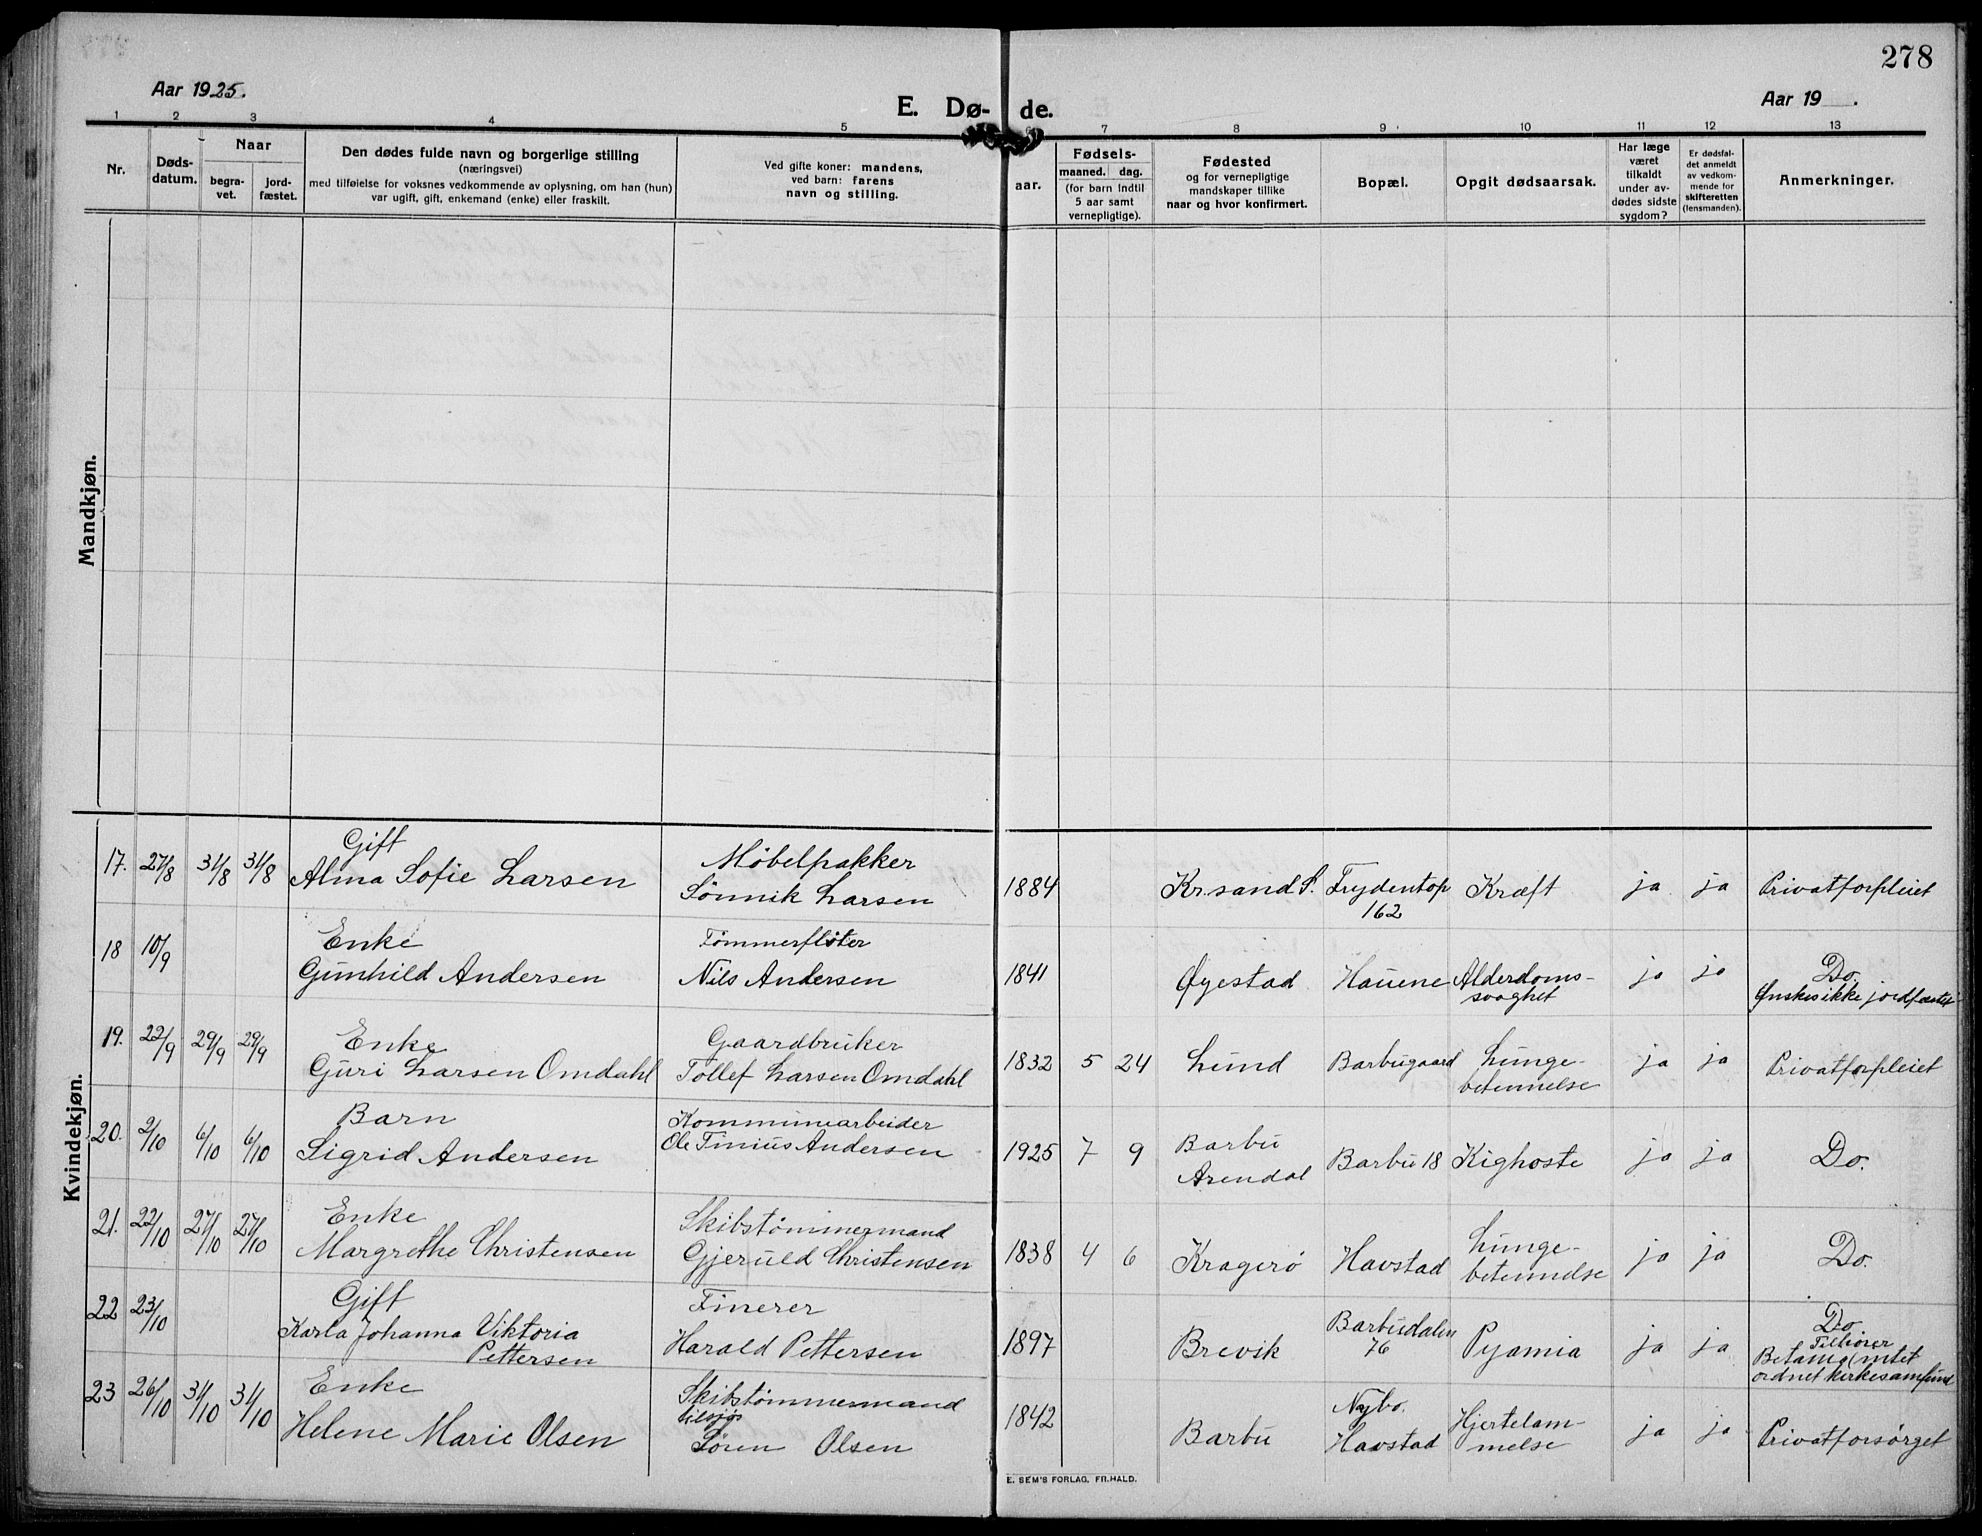 278
Aar 1925.
Aar 19 .
E. Dø- de.
1 2 3 4 5 6 7 8 9 10 11 12 13
Nr.
Døds-
datum.
Naar
begra-
vet.
jord-
fæstet.
Den dødes fulde navn og borgerlige stilling
(næringsvei)
med tilføielse for voksnes vedkommende av oplysning, om han (hun)
var ugift, gift, enkemand (enke) eller fraskilt.
Ved gifte koner: mandens,
ved barn: farens
navn og stilling.
aar.
Fødsels-
maaned. dag.
(for barn indtil
5 aar samt
vernepligtige).
Fødested
og for vernepligtige
mandskaper tillike
naar og hvor konfirmert.
Bopæl.
Opgit dødsaarsak.
Har læge
været
tilkaldt
under av-
dødes sidste
sygdom?
Er dødsfal-
det anmeldt
av vedkom-
mende for
skifteretten
(lensmanden).
Anmerkninger.
Mandkjøn.
Kvindekjøn.
17. 27/8 31/8 31/8 Gift
Alma Sofie Larsen
Møbelpakker
Sönnik Larsen
1884 Kr.sand S. Frydentop
162
Kræft ja ja Privatforpleiet
18 10/9 Enke
Gunhild Andersen
Tømmerfløter
Nils Andersen
1841 Øyestad Hauene Alderdoms-
svaghet
ja ja Do.
Ønskes ikke jordfæstet
19. 22/9 29/9 29/9 Enke
Guri Larsen Omdahl
Gaardbruker
Tollef Larsen Omdahl
1832 5 24 Lund Barbugaard Lunge-
betennelse
ja ja Privatforpleiet
20. 2/10 6/10 6/10 Barn
Sigrid Andersen
Kommunearbeider
Ole Tinius Andersen
1925 7 9 Barbu
Arendal
Barbu 18 Kighoste ja ja Do.
21. 22/10 27/10 27/10 Enke
Margrethe Christensen
Skibstømmermand
Gjeruld Christensen
1838 4 6 Kragerö Havstad Lunge-
betennelse
ja ja Do.
22 23/10 Gift
Karla Johanna Viktoria
Pettersen
Finerer
Harald Pettersen
1897 Brevik Barbudalen
76
Pyamia ja ja Do
Tilhører
Betania (intet
ordnet kirkesamfund
23 26/10 31/10 31/10 Enke
Helene Marie Olsen
Skibstømmermand
tilsjøs
Søren Olsen
1842 Barbu Nybo.
Havstad
Hjertelam-
melse
ja ja Privatforsørget
E. SEM'S FORLAG, FR.HALD.